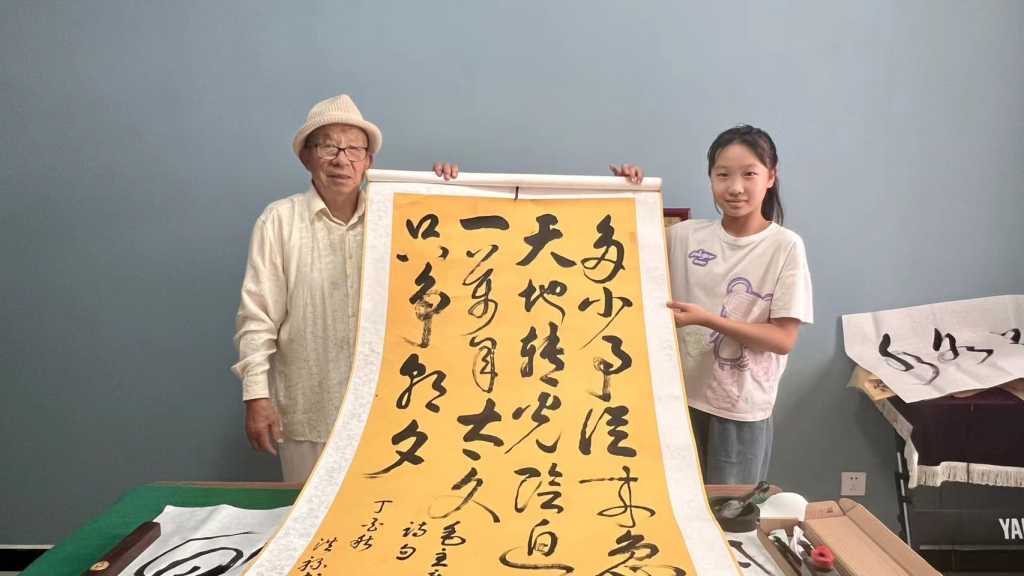 多少事从来急
天地转光阴迫
一万年太久
只争朝夕
毛主
诗句
丁酉秋
YA